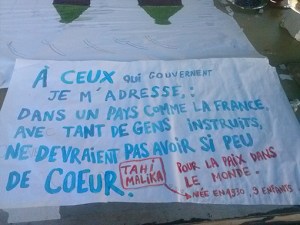 À CEUX QUI GOUVERNENT
JE M'ADRESSE,:
DANS UN PAYS COMME LA FRANCE,
AVEC TANT DE GENS INSTRUITS,
NE DEVRAIENT PAS AVOIR SI PEU
DE COEUR.
TAHI
MALIKA
POUR LA PAIX DANS
LE MONDE.
NÉE EN 1950, 3 ENFANTS